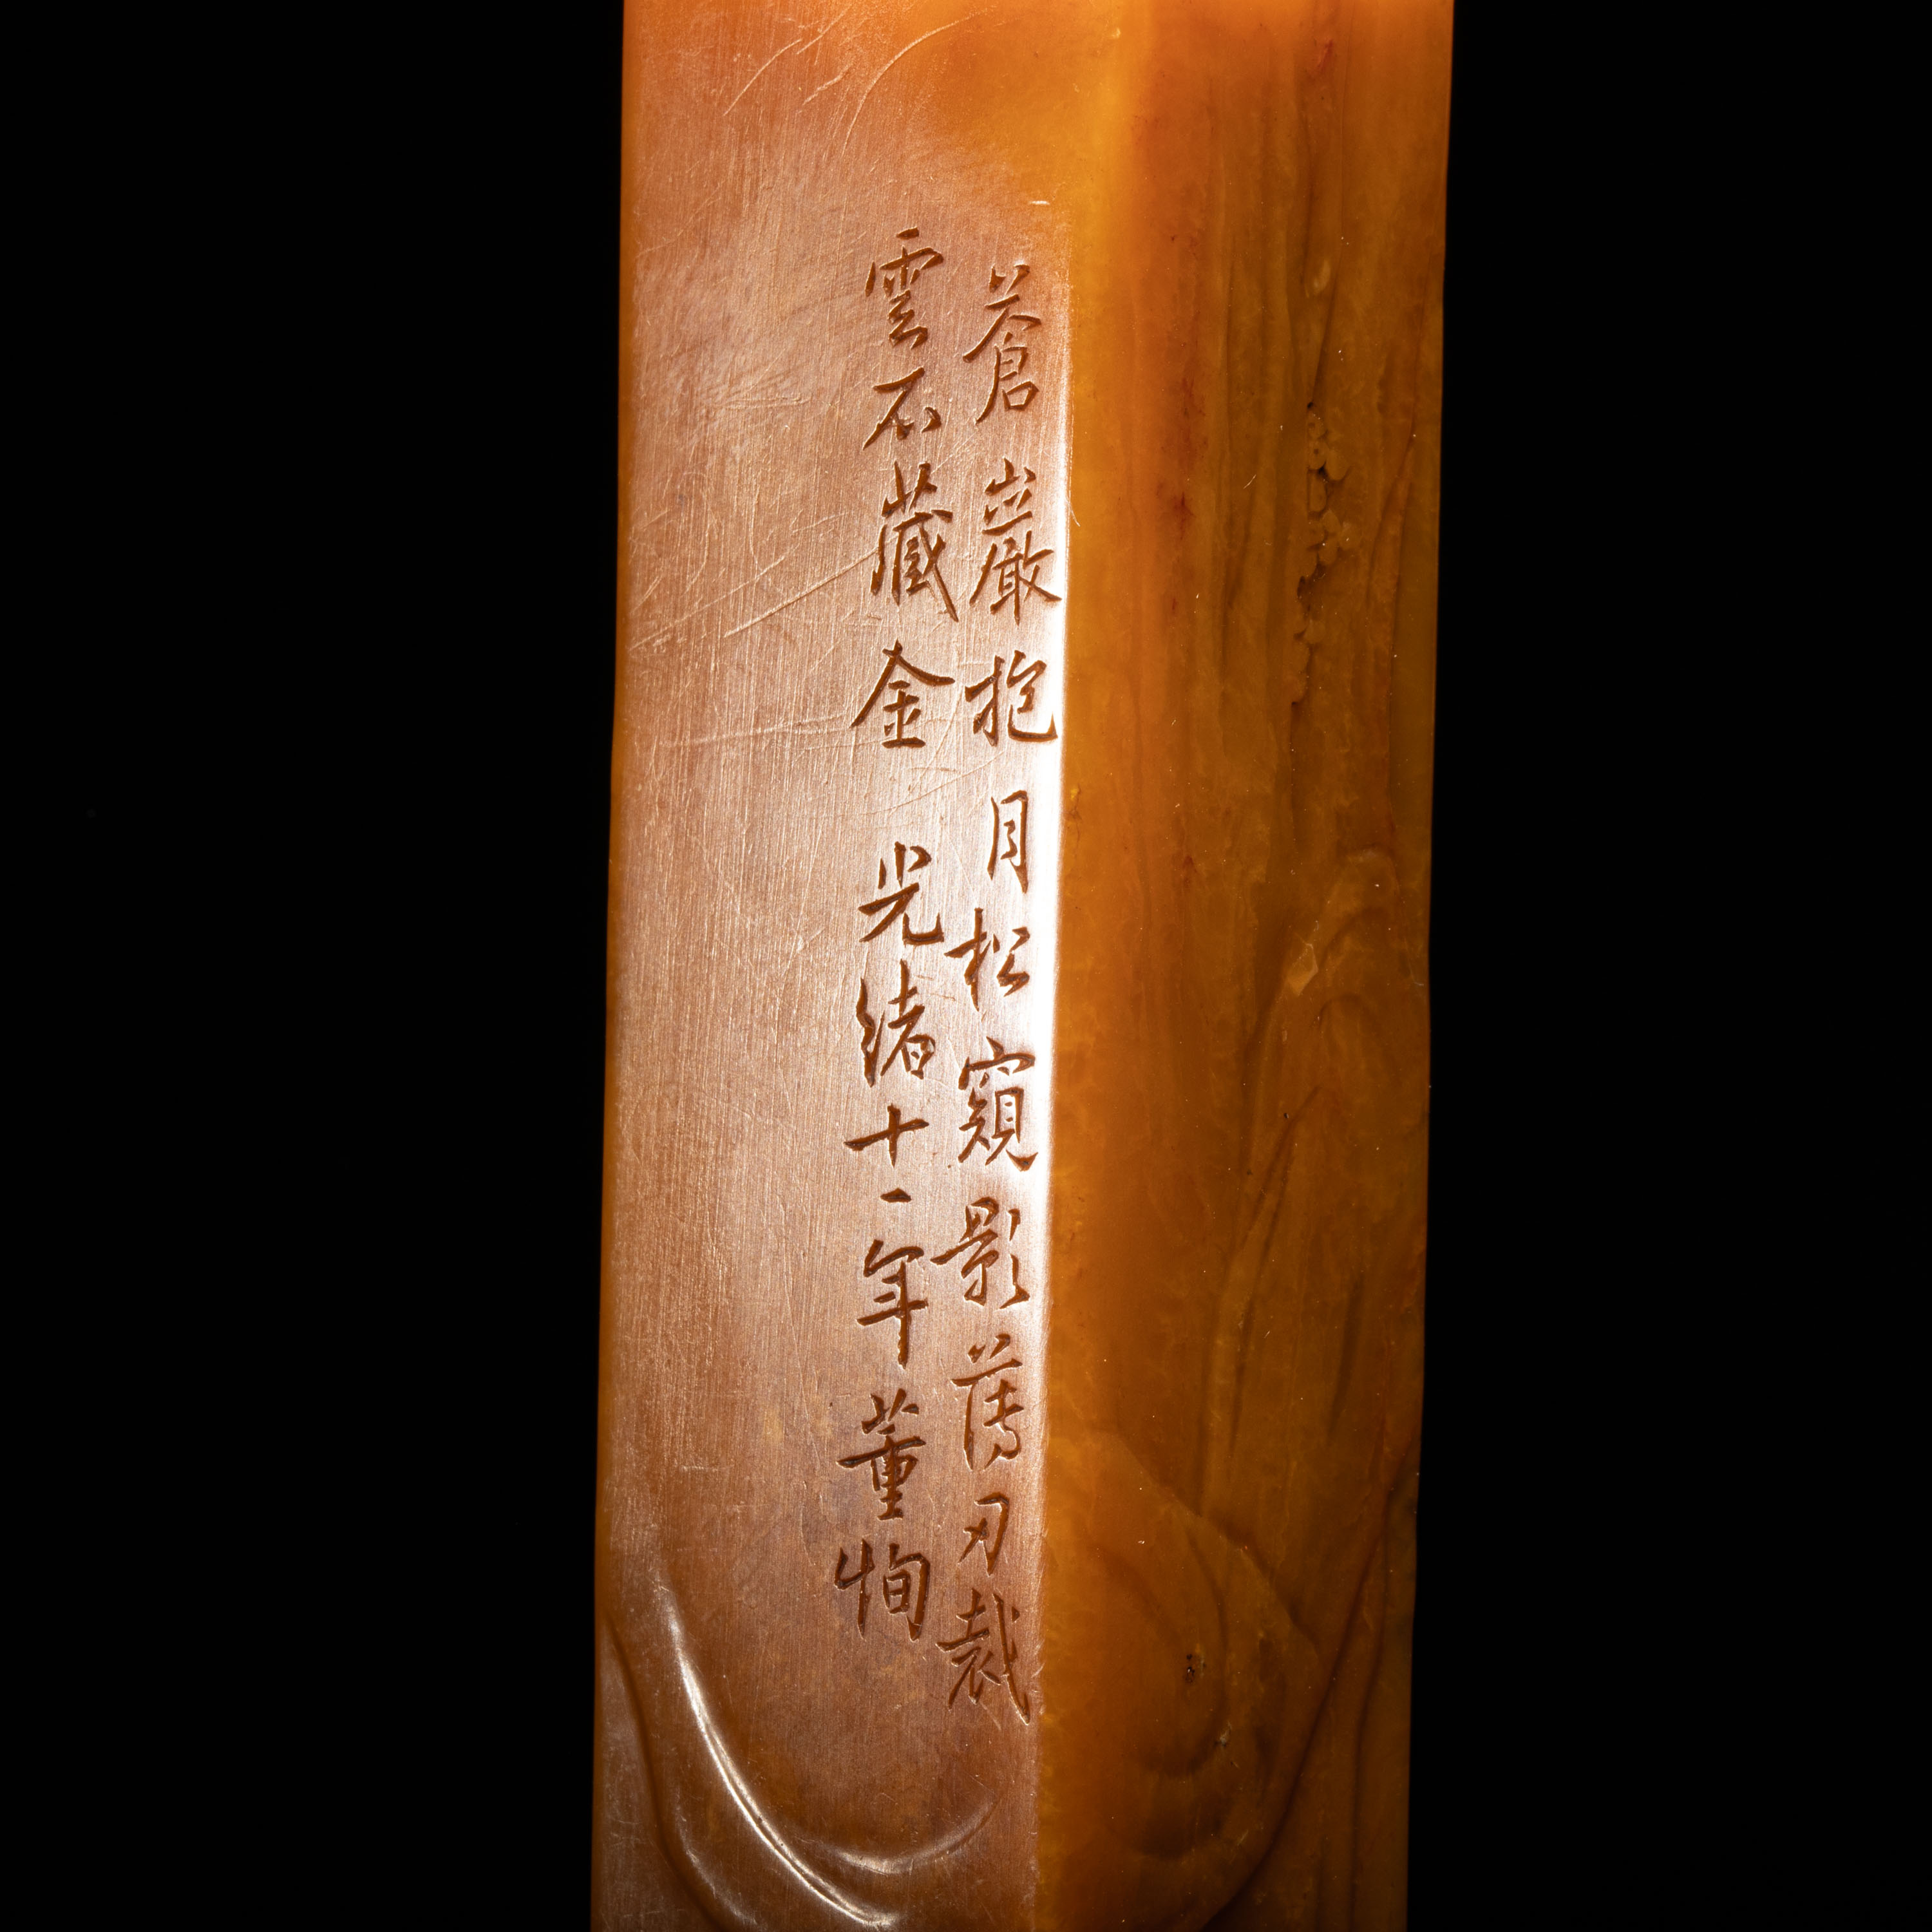 蒼巖抱月松窺影薄刃裁
雲石藏金 光緒十一年董恂